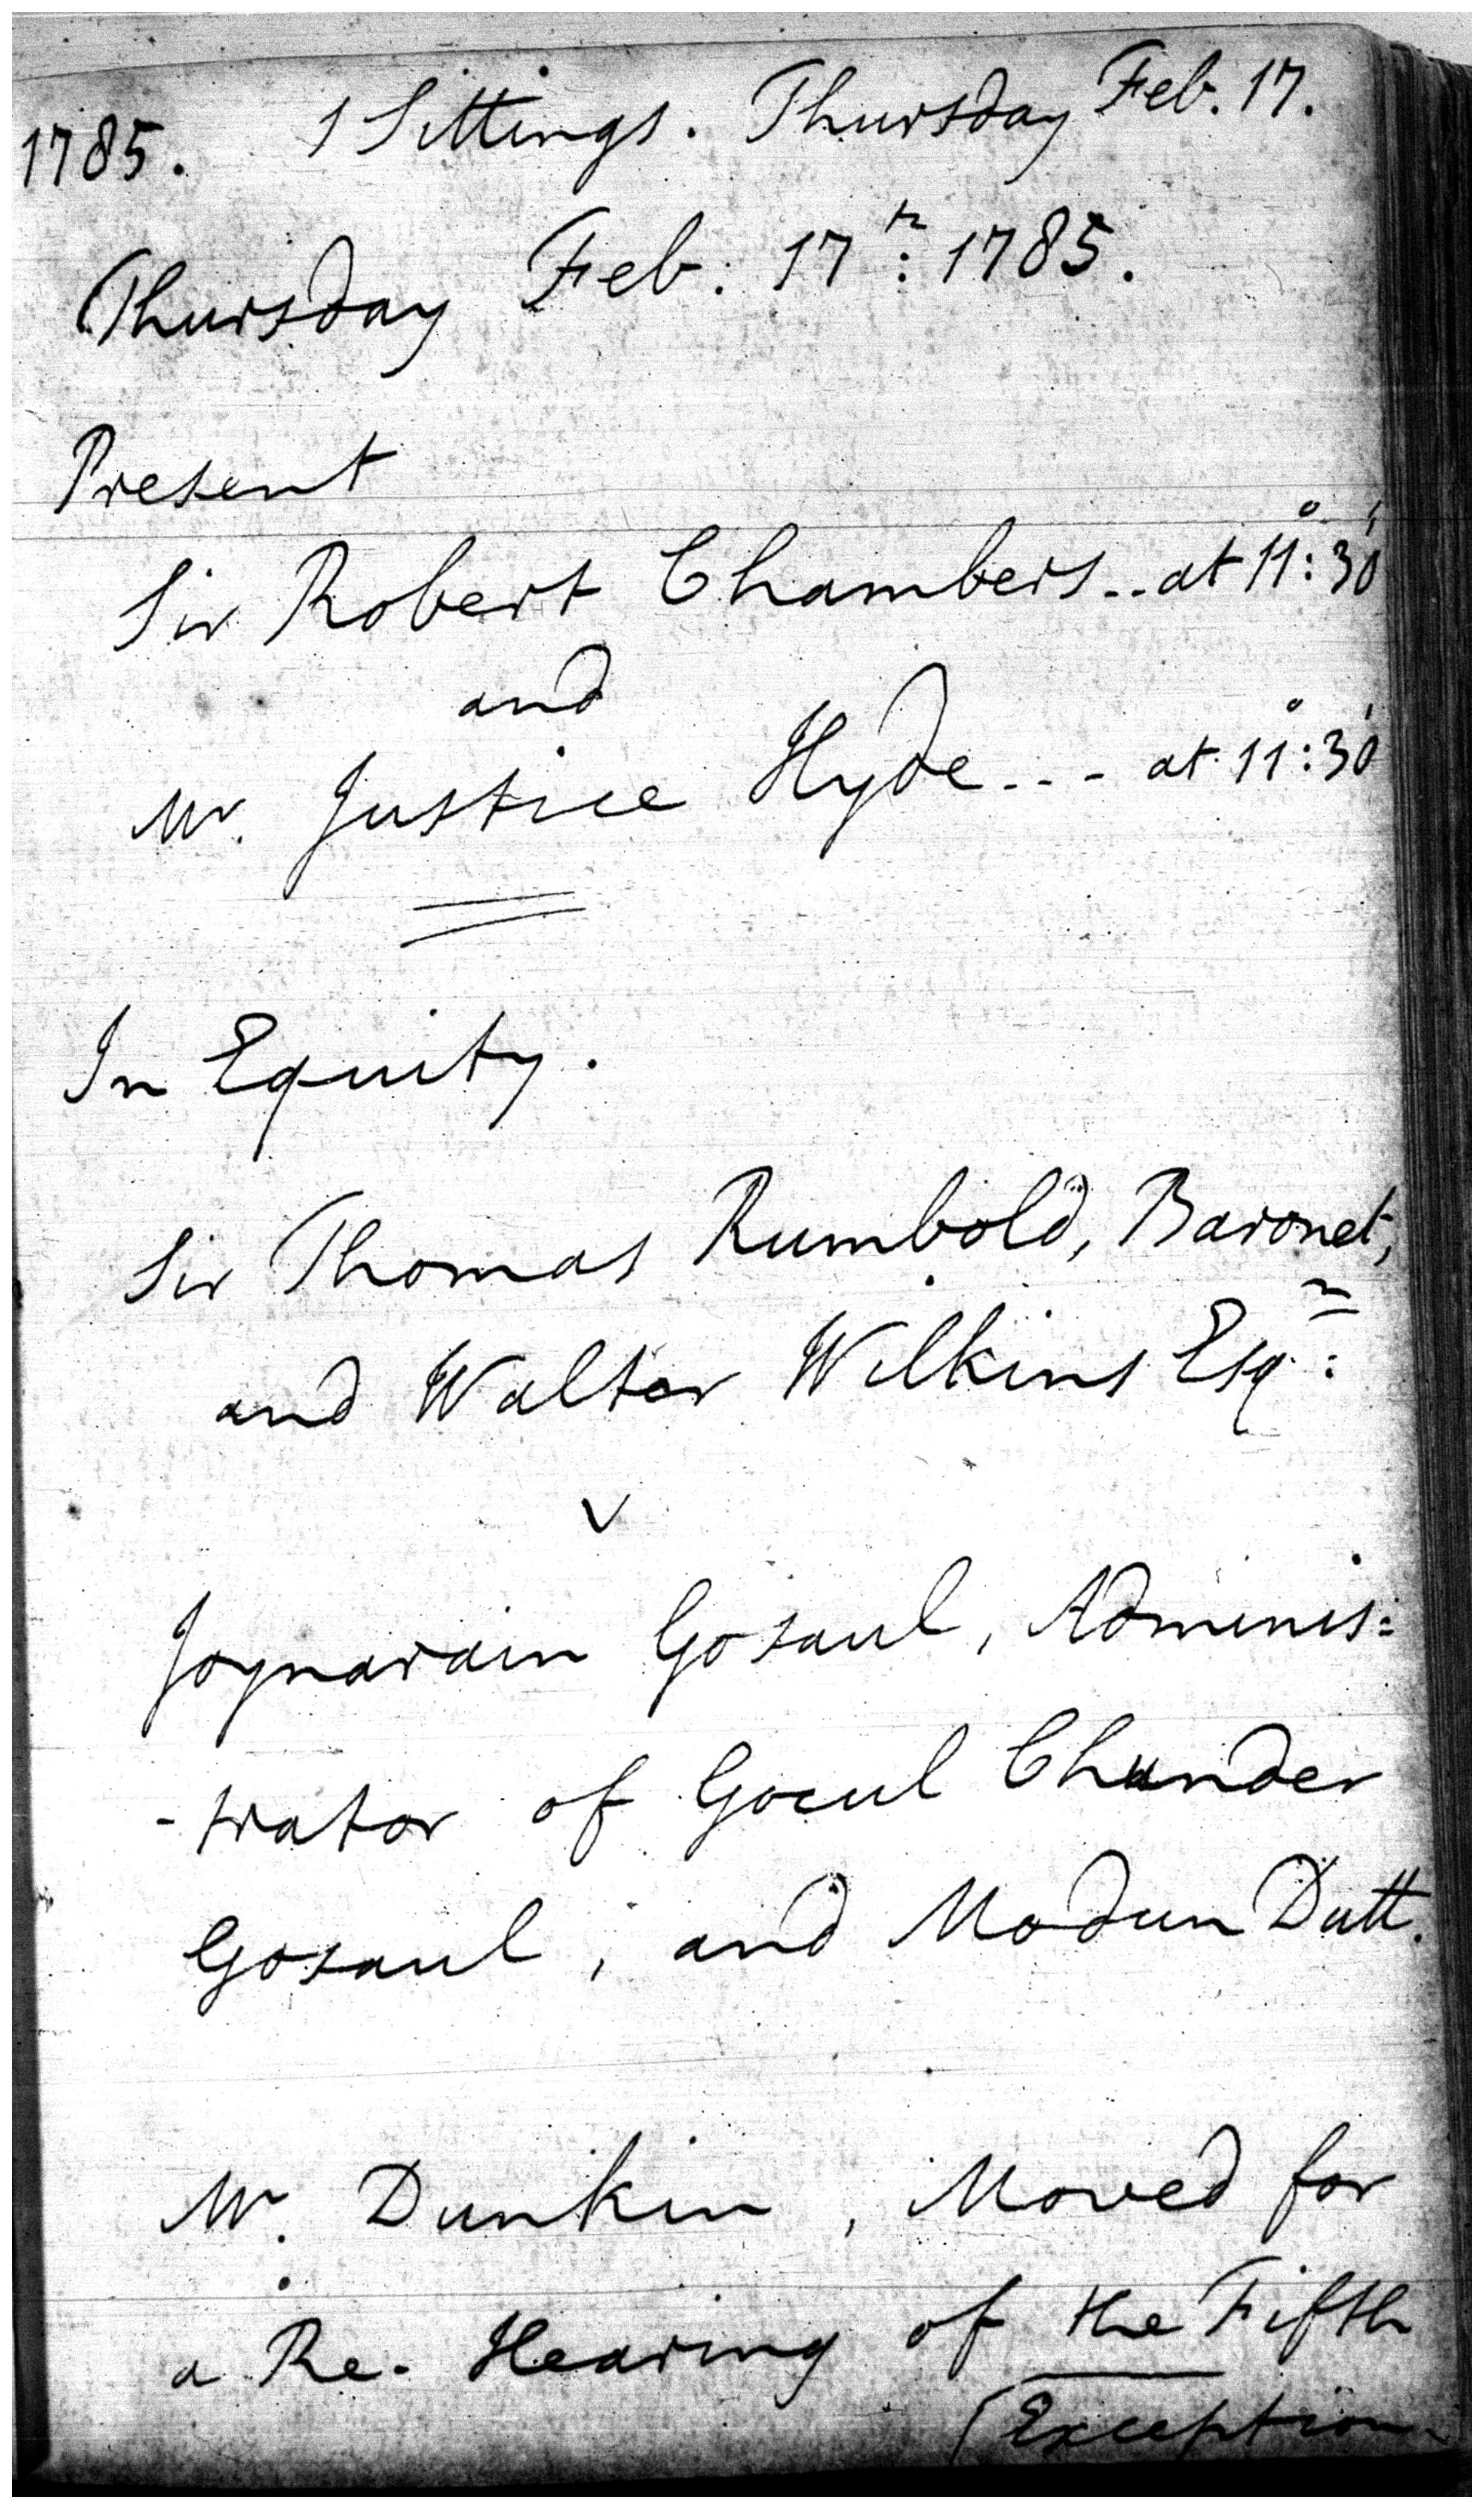 1785. 1 Sittings. Thursday Feb. 17.
Thursday Feb: 17th: 1785.
Present
Sir Robert Chambers.. at 11°:30'
and
Mr. Justice Hyde - - - at 11°:30'
In Equity.
Sir Thomas Rumbold, Baronet,
and Walter Wilkins Esqr:
v
Joynarain Gosaul, Adminis:
-trator of Gocul Chunder
Gosaul, and Modun Dutt.
Mr. Dunkin, Moved for
a Re-Hearing of the Fifth
(Exception